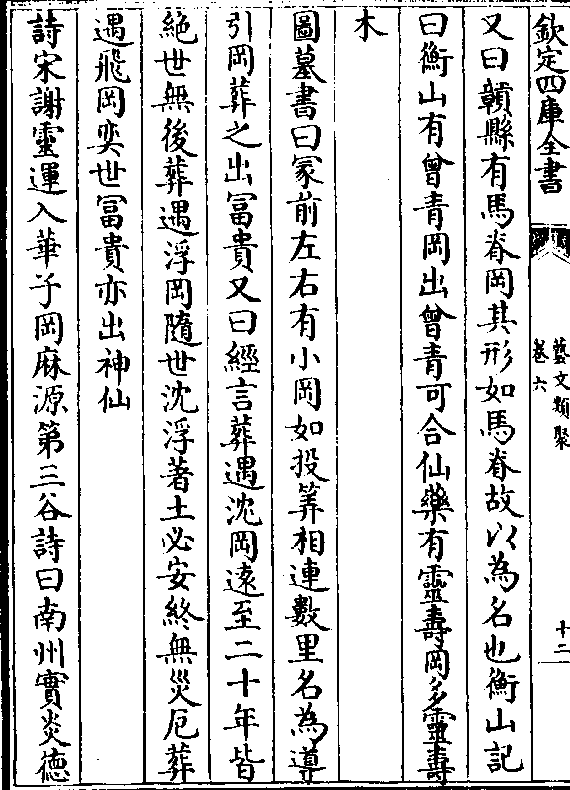 欽定四庫全書
藝文類聚
卷六
十二
又曰贛縣有馬脊岡其形如馬脊故以為名也衡山記
曰衡山有曾青岡出曾青可合仙藥有靈壽岡多靈壽
木
圖墓書曰冢前左右有小岡如投筭相連數里名為導
引岡葬之出冨貴又曰經言葬遇沈岡遠至二十年皆
絶世無後葬遇浮岡隨世沈浮著土必安終無災厄葬
遇飛岡奕世冨貴亦出神仙
詩宋謝靈運入華子岡麻源第三谷詩曰南州實炎徳